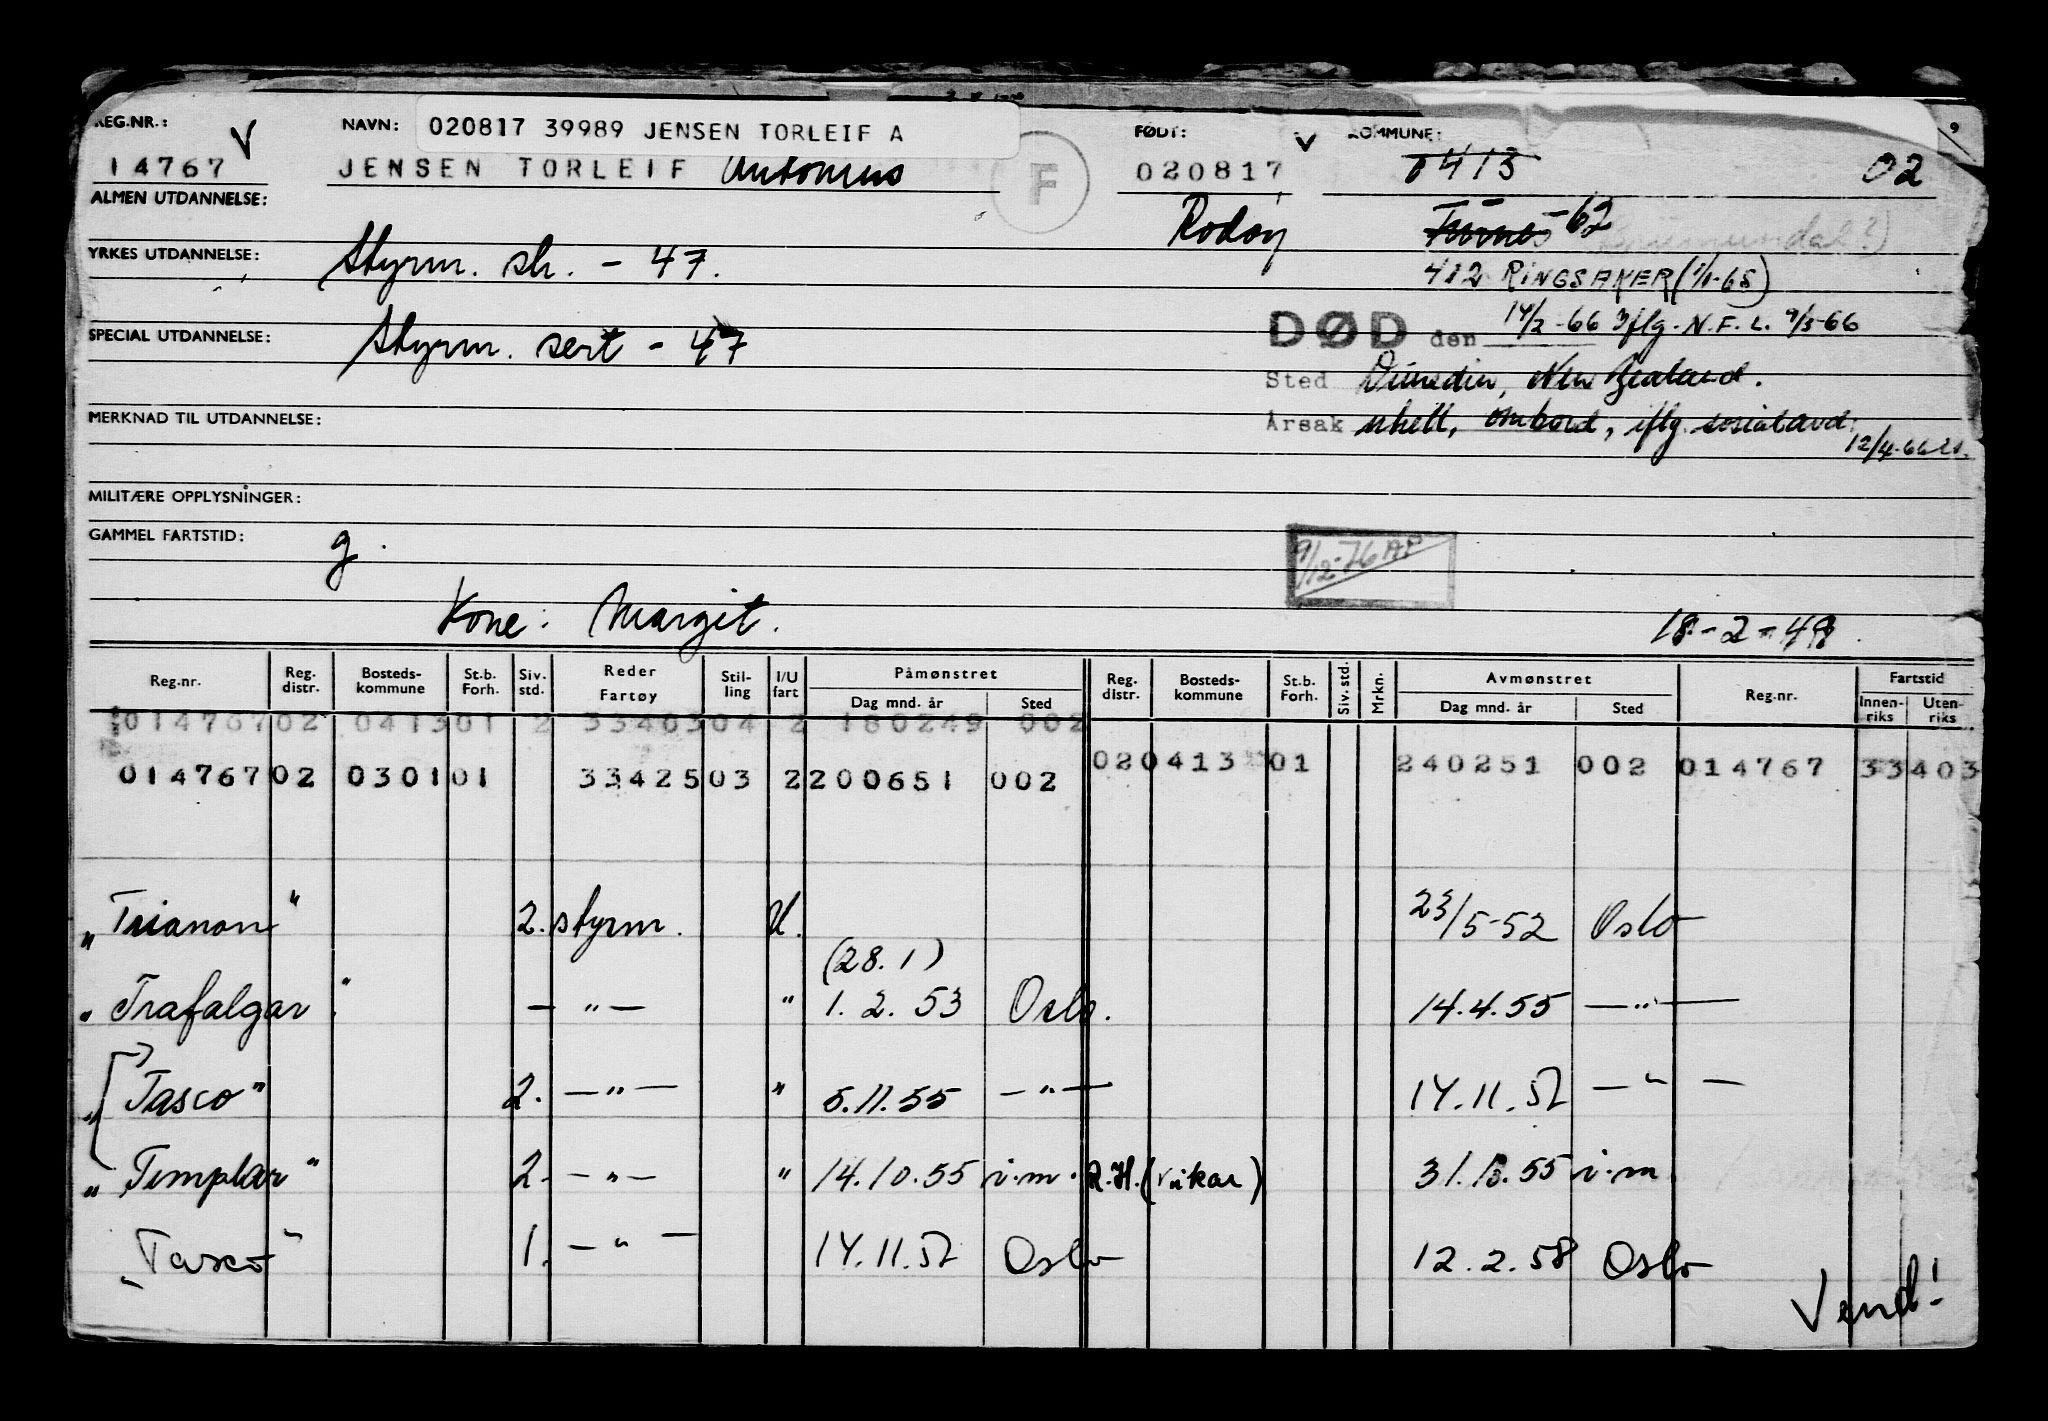 REG.NR.: V NAVN: 020817 39989 JENSEN TORLEIF A FØDT: V KOMMUNE:
14767 JENSEN TORLEIF Antonius F 020817 0413 02
ALMEN UTDANNELSE: Rødøy Furnes - 62
YRKES UTDANNELSE: Styrm. sk. - 47. 412 RINGSAKER (1/1-65)
SPECIAL UTDANNELSE: Styrm. sert - 47 DØD den 14/2-66 iflg. N.F.L. 9/3-66
Sted Dunedin, New Zealand.
MERKNAD TIL UTDANNELSE: Årsak uhell, ombord, iflg. sosialavd.
12/4-66
MILITÆRE OPPLYSNINGER:
GAMMEL FARTSTID: g. 9/12-76 AP
Kone: Margit. 18-2-49.
Reg.nr. Reg. distr. Bosteds-kommune St.b. Forh. Siv. std. Reder Fartøy Stil-ling I/U fart Påmønstret Dag mnd. år Sted Reg. distr. Bosteds-kommune St.b. Forh. Siv. std. Mrkn. Avmønstret Dag mnd. år Sted Reg.nr. Fartstid Innen-riks Uten-riks
014767 02 0413 01 2 33403 04 2 180249 002
02 0413 01 240251 002 014767 33403
014767 02 0301 01 33425 03 2 200651 002
"Trianon" 2. styrm. U. 23/5-52 Oslo
(28.1)
"Trafalgar" — " — " 1. 2. 53 Oslo. 14.4.55 — " —
"Tasco" 2. — " — " 5.11.55 — " — 14.11.57 — " —
"Templar" 2. — " — " 14.10.55 i.m. R.H. (vikar) 31.10.55 i.m.
"Tasco" 1. — " — 14.11.57 Oslo 12.2.58 Oslo
Vend!